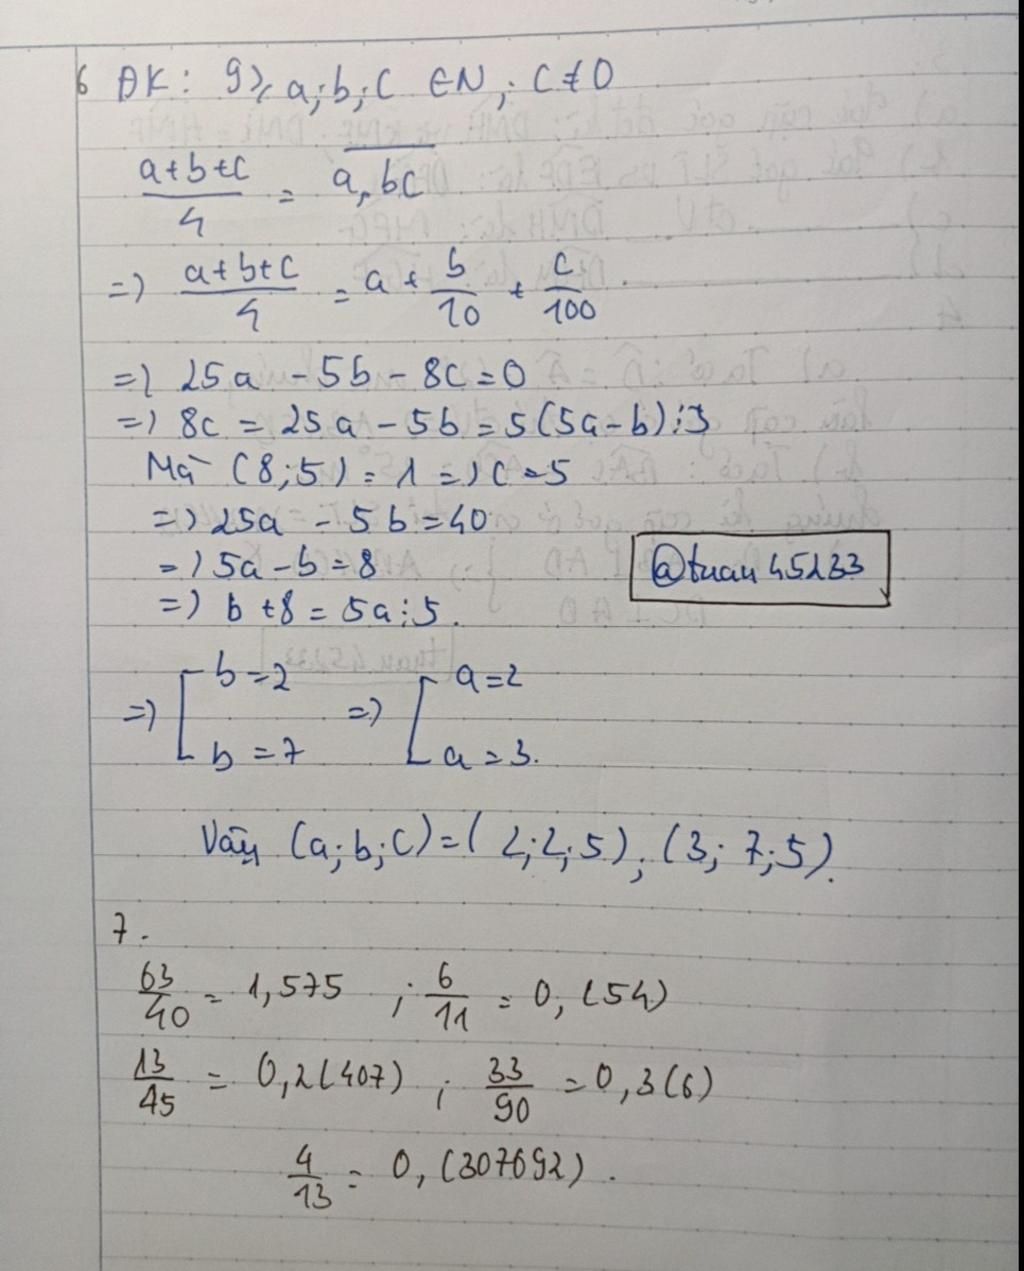 6 ĐK: 9 ≥ a;b;c ∈ N; c ≠ 0
(a+b+c)/4 = \overline{a,bc}
=) (a+b+c)/4 = a + b/10 + c/100.
=) 25a - 5b - 8c = 0
=) 8c = 25a - 5b = 5(5a-b) ⋮ 3
Mà (8;5) = 1 =) c = 5
=) 25a - 5b = 40
=) 5a - b = 8
@tuan45233
=) b + 8 = 5a ⋮ 5.
=) [ b = 2 =) [ a = 2
b = 7 a = 3.
Vậy (a;b;c) = (2;2;5); (3;7;5).
7.
63/40 = 1,575 ; 6/11 = 0,(54)
13/45 = 0,2(407) ; 33/90 = 0,3(6)
4/13 = 0,(307692).